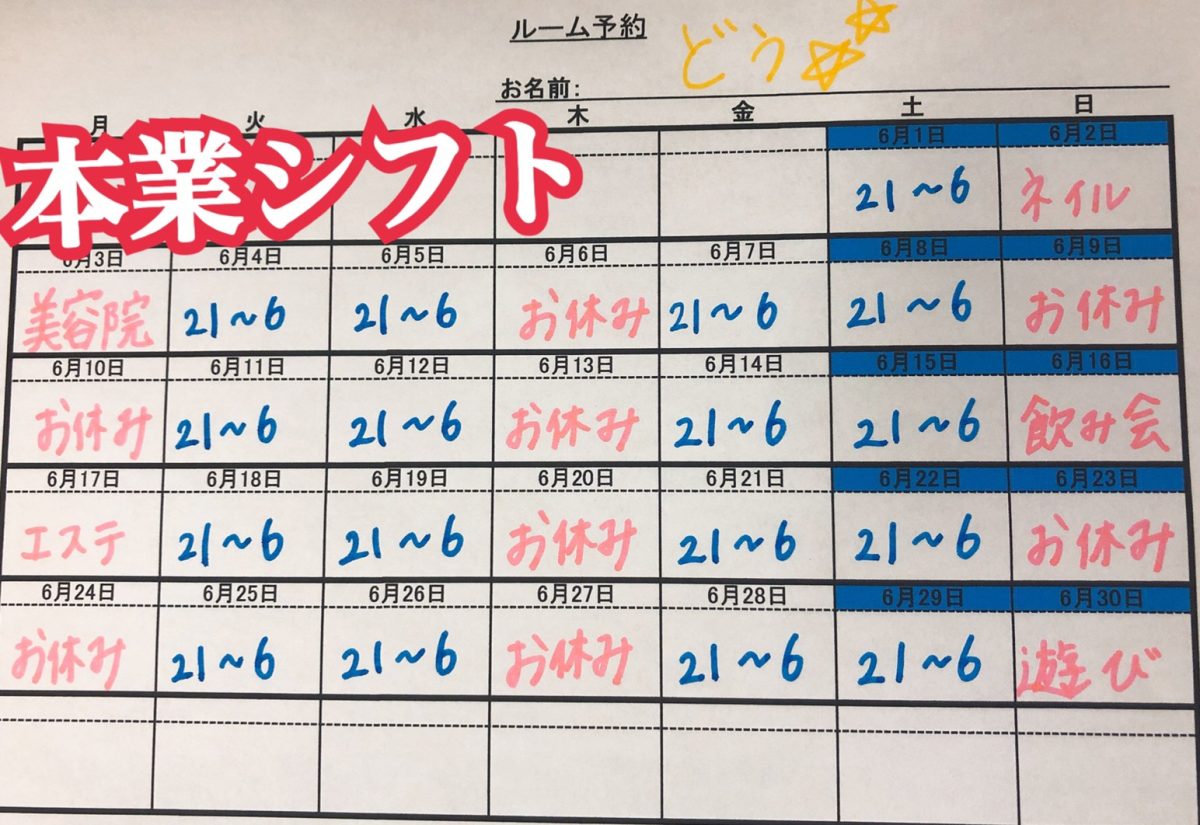 ルーム予約
お名前: どう☆☆
月 火 水 木 金 土 日
本業シフト
6月1日 6月2日
21~6 ネイル
6月3日 6月4日 6月5日 6月6日 6月7日 6月8日 6月9日
美容院 21~6 21~6 お休み 21~6 21~6 お休み
6月10日 6月11日 6月12日 6月13日 6月14日 6月15日 6月16日
お休み 21~6 21~6 お休み 21~6 21~6 飲み会
6月17日 6月18日 6月19日 6月20日 6月21日 6月22日 6月23日
エステ 21~6 21~6 お休み 21~6 21~6 お休み
6月24日 6月25日 6月26日 6月27日 6月28日 6月29日 6月30日
お休み 21~6 21~6 お休み 21~6 21~6 遊び